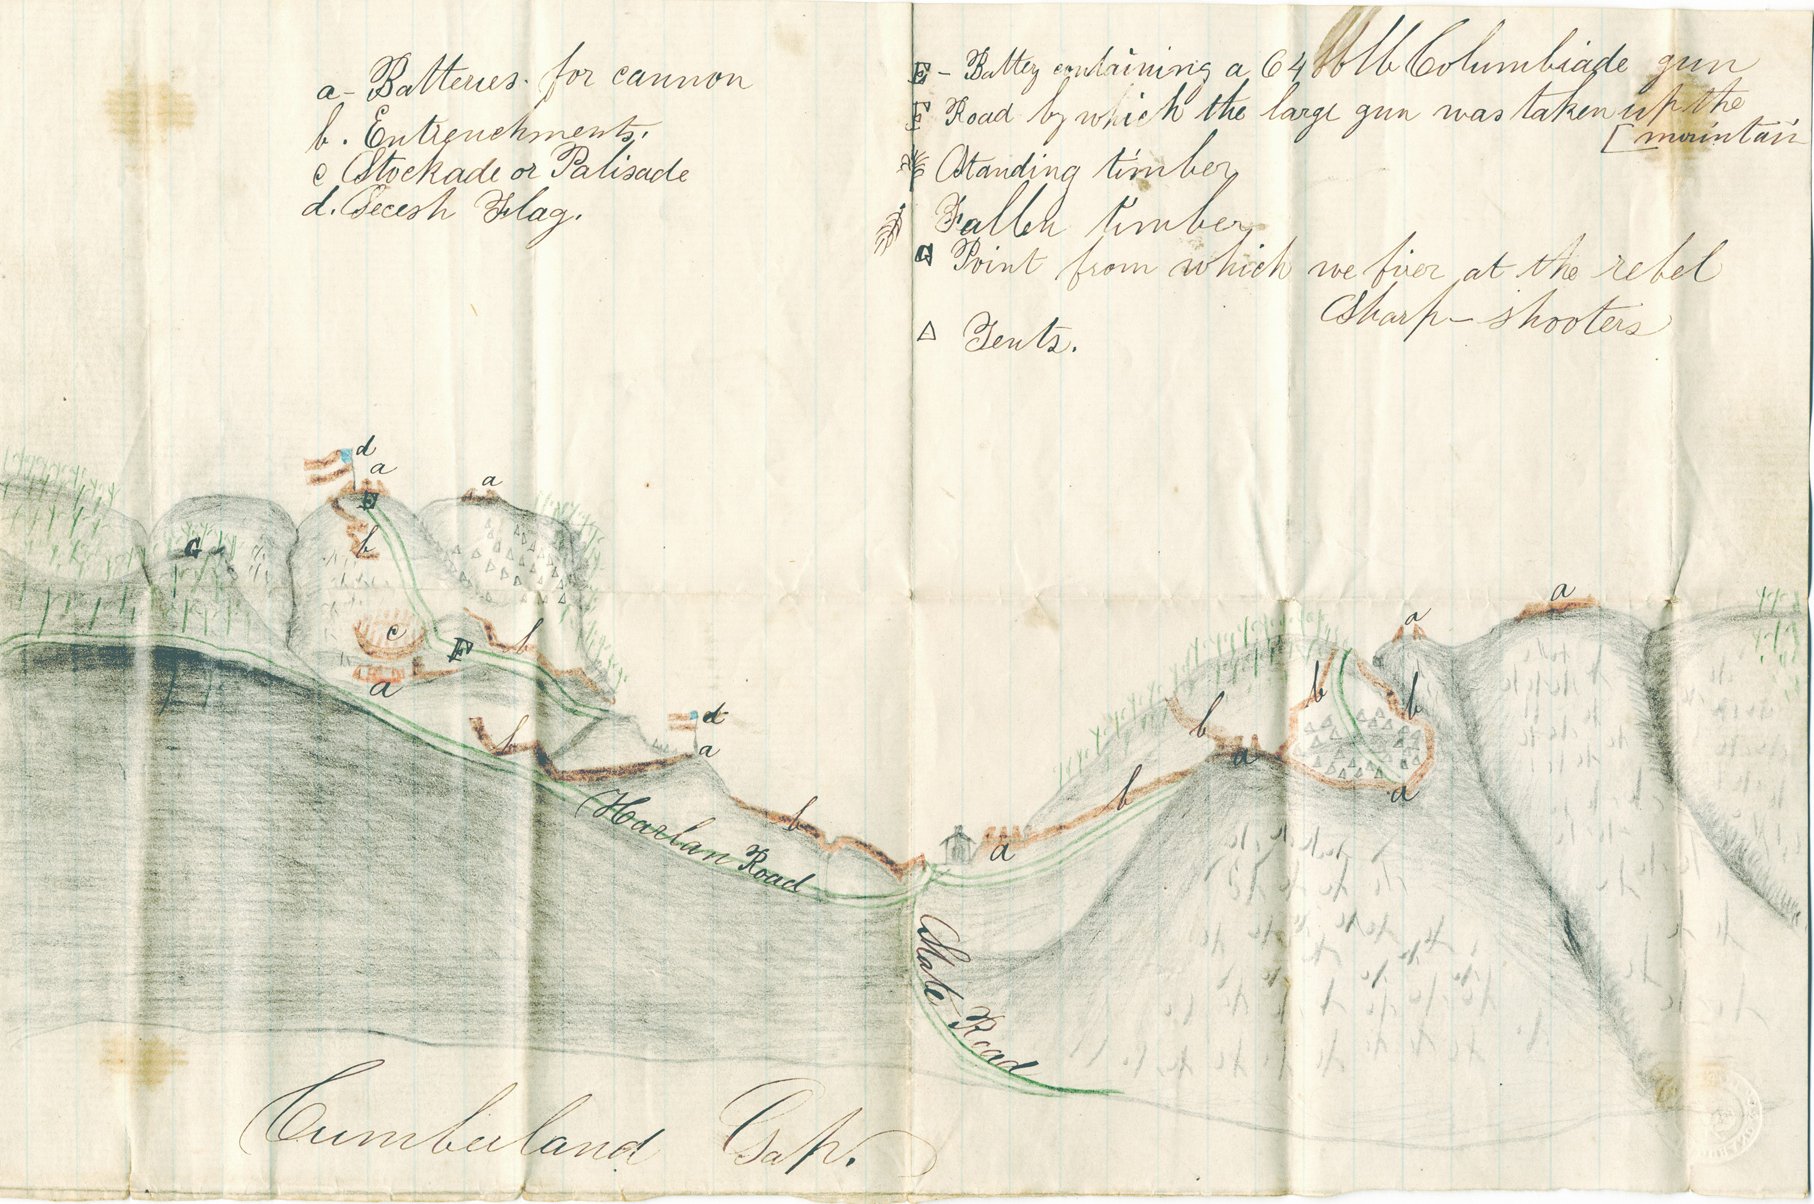 a - Batteries. for cannon
b. Entrenchments.
c Stockade or Palisade
d. Secesh Flag.
E - Battey containing a 64 lb Columbiade gun
F Road by which the large gun was taken up the
[mountain
Standing timber
Fallen timber
G Point from which we fier at the rebel
Sharp-shooters
△ Tents.
d
a
a
E
G
b
c
F
b
a
d
b
a
b
Harlan Road
a
a
a
b
b
b
a
b
a
a
State Road
Cumberland Gap.